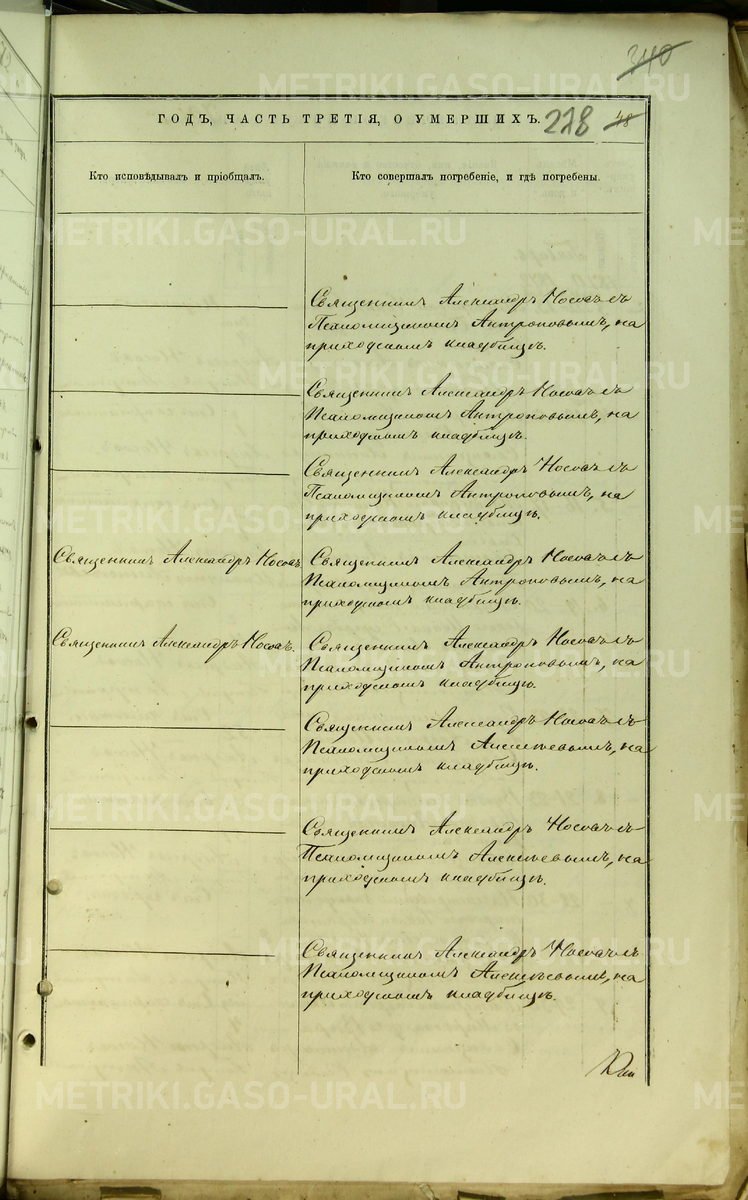 340
ГОДЪ, ЧАСТЬ ТРЕТІЯ, О УМЕРШИХЪ.
278
48
Кто исповѣдывалъ и пріобщалъ.
Кто совершалъ погребеніе, и гдѣ погребены.
Священникъ Александръ Носовъ съ
Псаломщикомъ Антроповымъ, на
приходскомъ кладбищѣ.
Священникъ Александръ Носовъ съ
Псаломщикомъ Антроповымъ, на
приходскомъ кладбищѣ.
Священникъ Александръ Носовъ съ
Псаломщикомъ Антроповымъ, на
приходскомъ кладбищѣ.
Священникъ Александръ Носовъ.
Священникъ Александръ Носовъ съ
Псаломщикомъ Антроповымъ, на
приходскомъ кладбищѣ.
Священникъ Александръ Носовъ.
Священникъ Александръ Носовъ съ
Псаломщикомъ Антроповымъ, на
приходскомъ кладбищѣ.
Священникъ Александръ Носовъ съ
Псаломщикомъ Алексѣевымъ, на
приходскомъ кладбищѣ.
Священникъ Александръ Носовъ съ
Псаломщикомъ Алексѣевымъ, на
приходскомъ кладбищѣ.
Священникъ Александръ Носовъ съ
Псаломщикомъ Алексѣевымъ, на
приходскомъ кладбищѣ.
METRIKI.GASO-URAL.RU